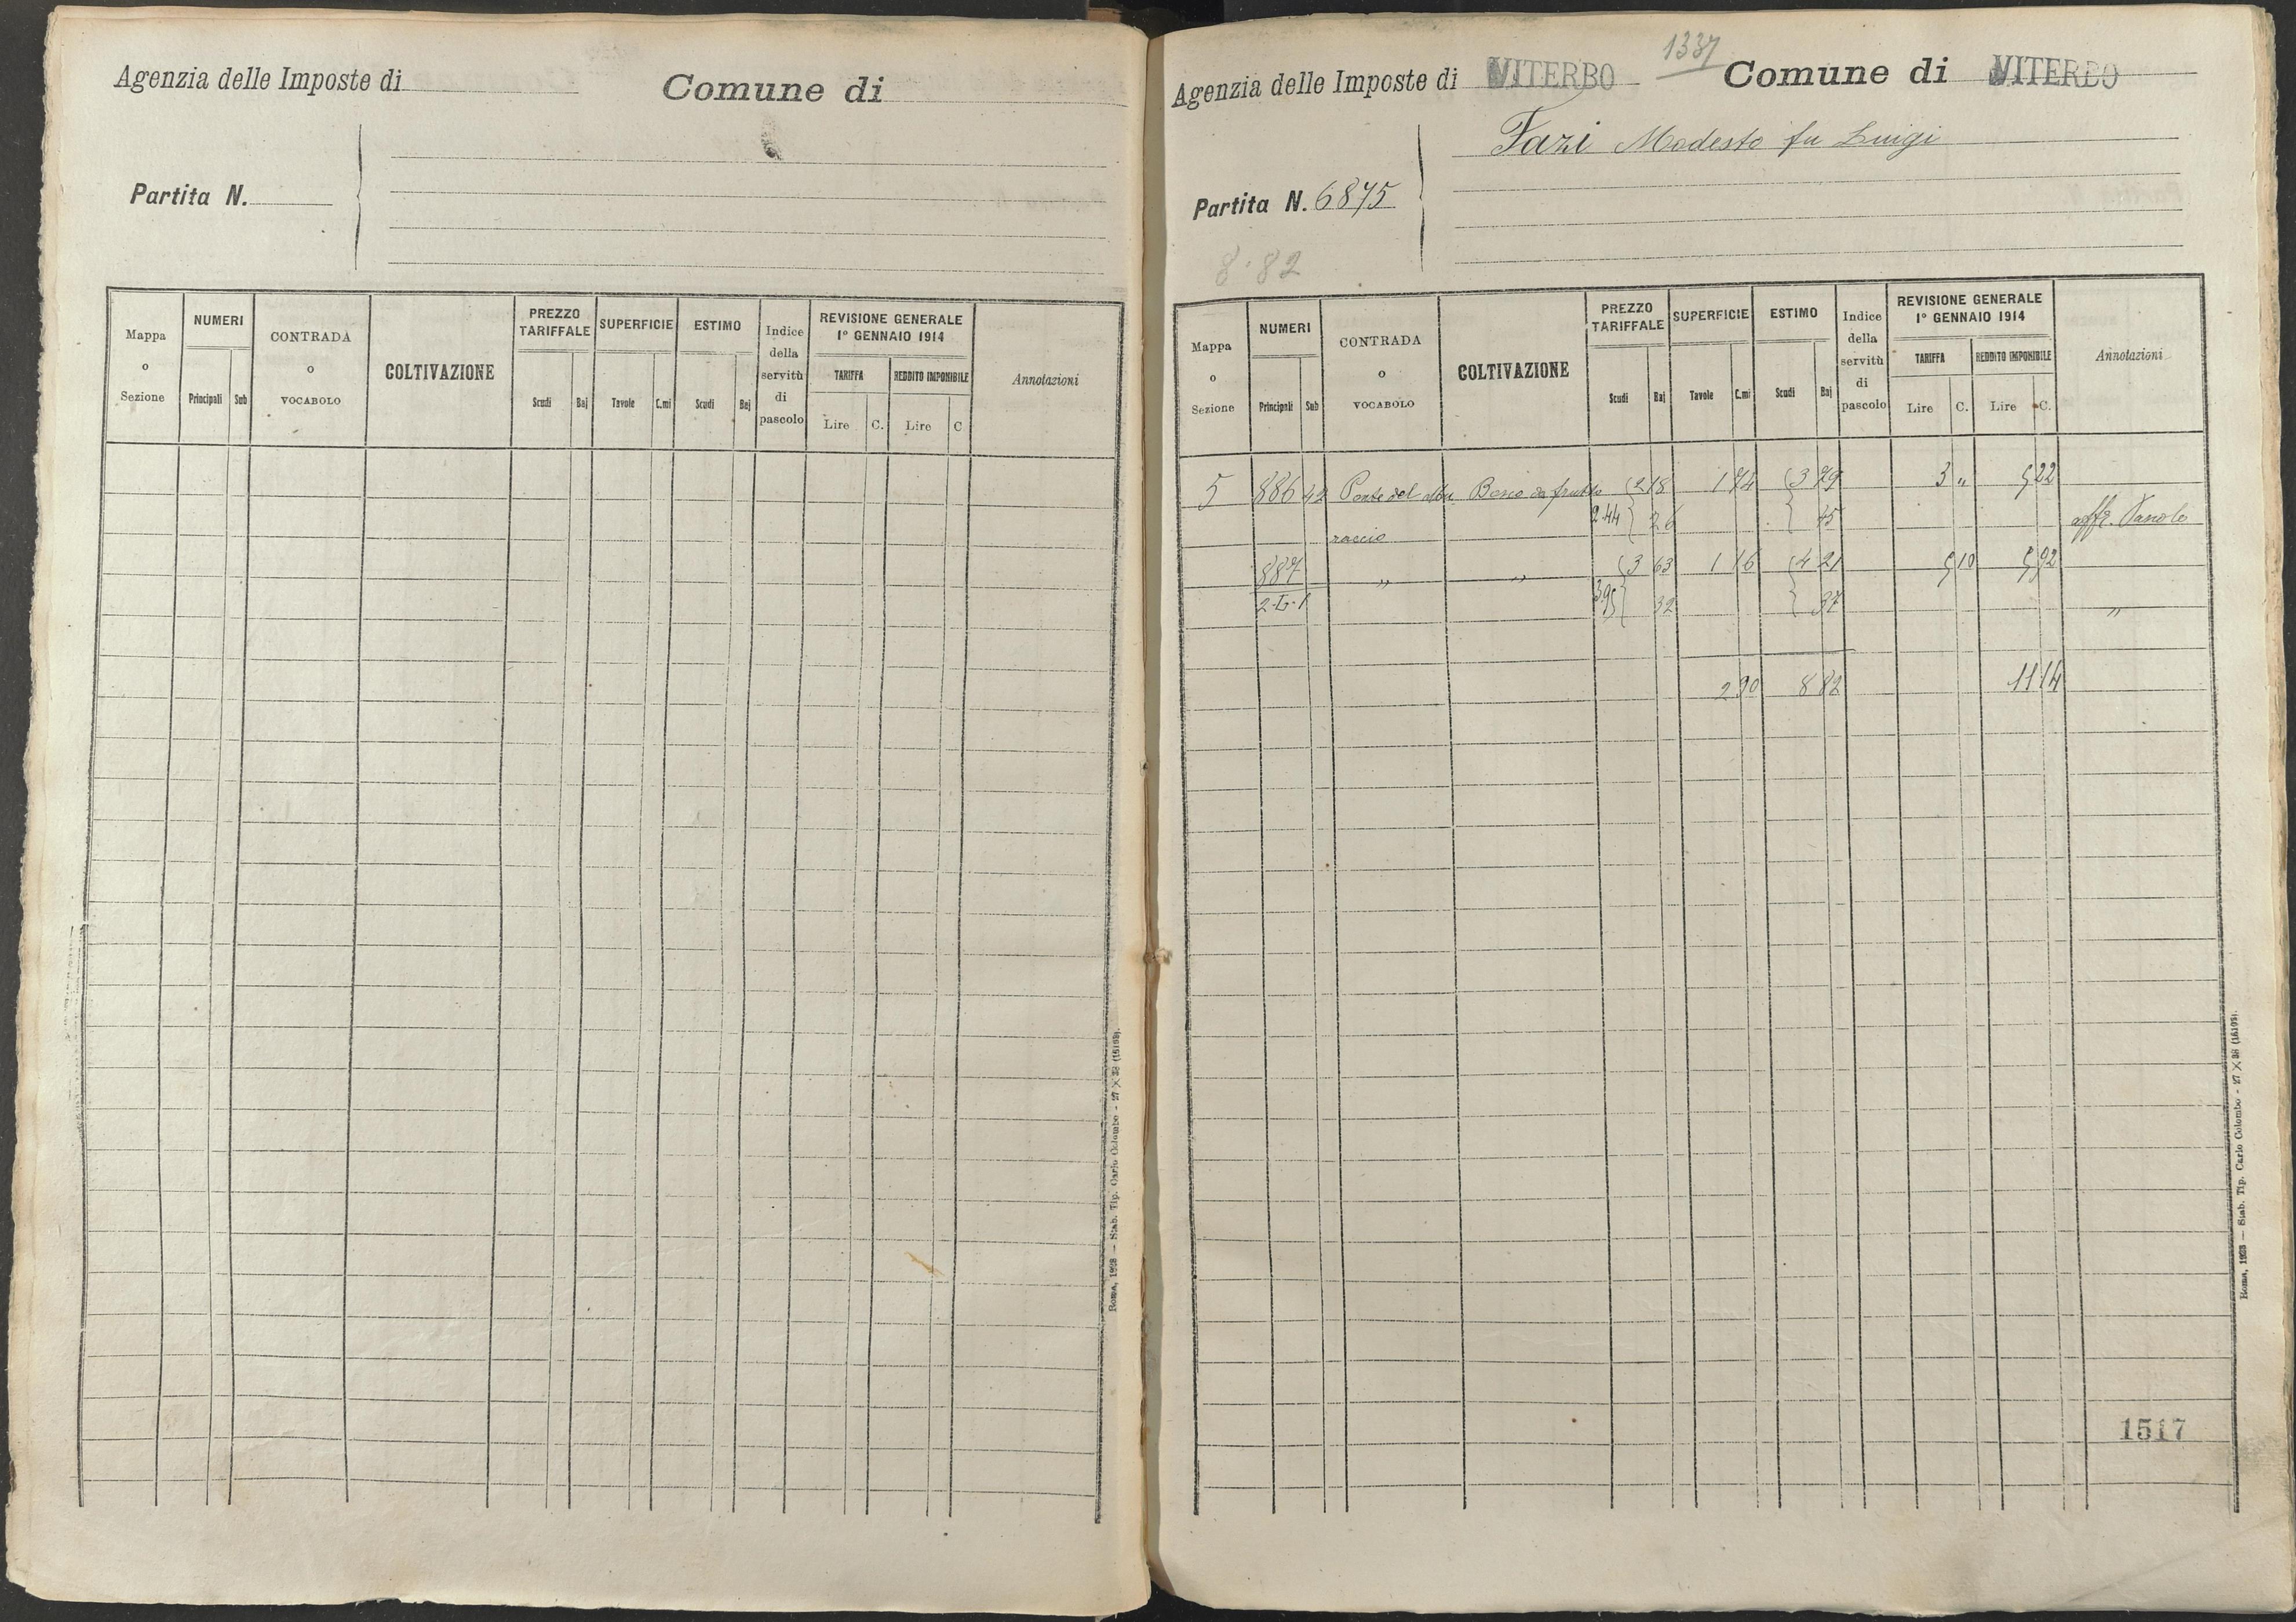 Agenzia delle Imposte di
Comune di
Partita N.
Mappa o Sezione
NUMERI
Principali Sub
CONTRADA o VOCABOLO
COLTIVAZIONE
PREZZO TARIFFALE
Scudi Baj
SUPERFICIE
Tavole C.mi
ESTIMO
Scudi Baj
Indice della servitù di pascolo
REVISIONE GENERALE
1° GENNAIO 1914
TARIFFA
Lire C.
REDDITO IMPONIBILE
Lire C
Annotazioni
Roma, 1928 — Stab. Tip. Carlo Colombo - 27 X 38 (15193).
1337
Agenzia delle Imposte di VITERBO
Comune di VITERBO
Fazi Modesto fu Luigi
Partita N. 6875
8.82
Mappa o Sezione
NUMERI
Principali Sub
CONTRADA o VOCABOLO
COLTIVAZIONE
PREZZO TARIFFALE
Scudi Baj
SUPERFICIE
Tavole C.mi
ESTIMO
Scudi Baj
Indice della servitù di pascolo
REVISIONE GENERALE
1° GENNAIO 1914
TARIFFA
Lire C.
REDDITO IMPONIBILE
Lire C.
Annotazioni
5 886 42 Ponte del Bosco da frutto 2 18 1 74 3 79 3 " 5 22
raccio 2 44 26 45 aff.
887 " " 3 63 1 16 4 21 5 10 5 92
3 95 32 37 "
2 90 8 82 11 14
1517
Roma, 1928 — Stab. Tip. Carlo Colombo - 27 X 38 (15193).